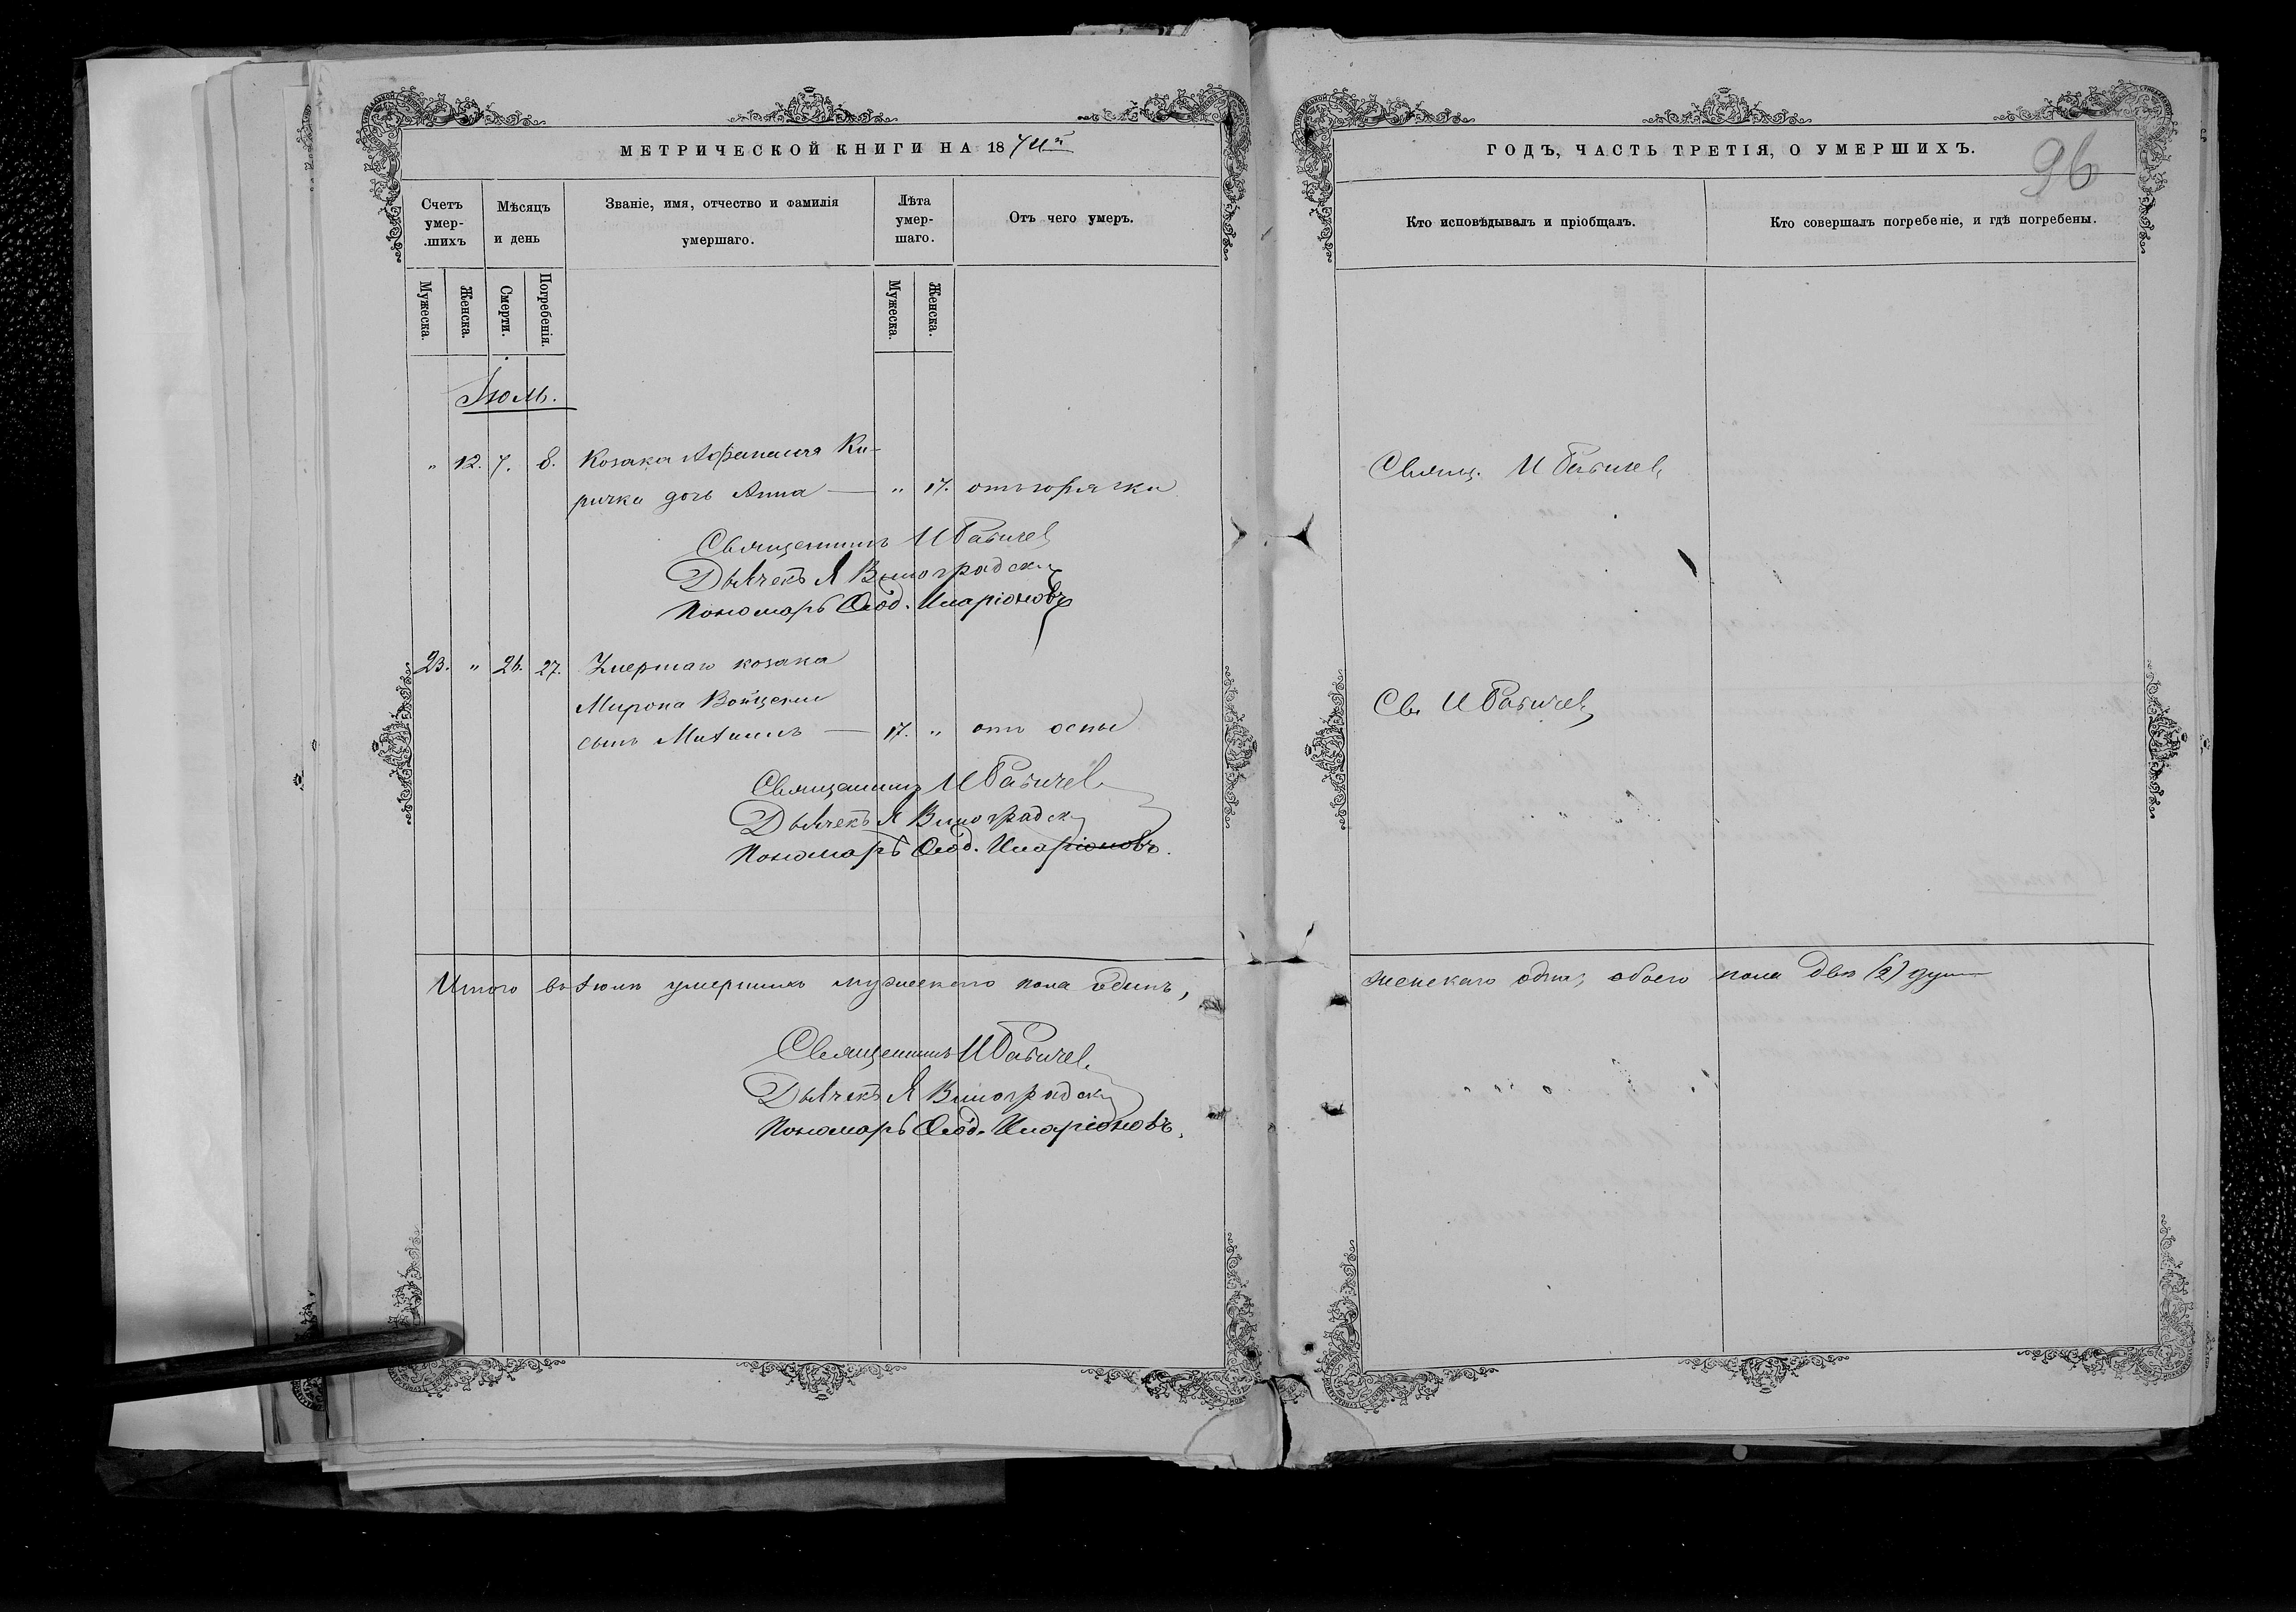 МЕТРИЧЕСКОЙ КНИГИ НА 1874й
Счетъ умер-.шихъ
Мѣсяцъ и день
Званіе, имя, отчество и фамилія умершаго.
Лѣта умер-шаго.
Отъ чего умеръ.
Мужеска.
Женска.
Смерти.
Погребенія.
Мужеска.
Женска.
Іюль.
" 12. 7. 8. Козака Афанасія Ки-
ричка дочь Анна — " 17. отъ горячки
Священникъ И Бабичев
Дьячекъ Я Виноградскій
Пономарь Ѳеод. Иларіоновъ
23. " 26. 27. Умершаго козака
Мирона Войценки
сынъ Михаилъ — 17. " отъ оспы
Священникъ И Бабичев
Дьячекъ Я Виноградскій
Пономарь Ѳеод. Иларіоновъ.
Итого въ Іюлѣ умершихъ мужескаго пола одинъ,
Священникъ И Бабичев
Дьячекъ Я Виноградскій
Пономарь Ѳеод. Иларіоновъ.
ГОДЪ, ЧАСТЬ ТРЕТІЯ, О УМЕРШИХЪ.
96
Кто исповѣдывалъ и пріобщалъ.
Кто совершалъ погребеніе, и гдѣ погребены.
Свящ. И Бабичев
Св. И Бабичев
женскаго одна, обоего пола двѣ (2) души